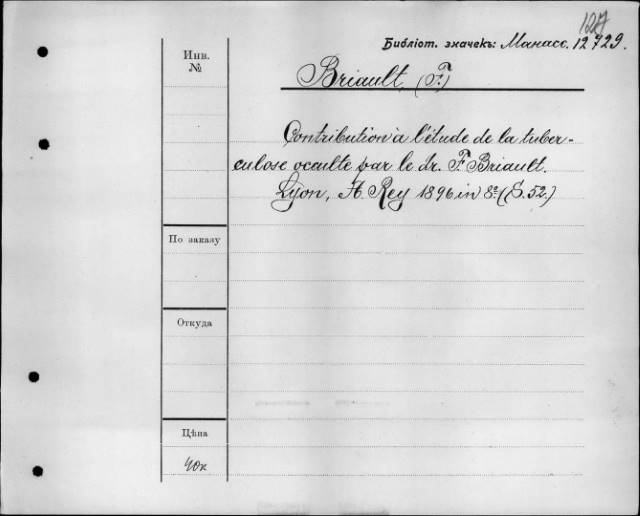 127
Библіот. значекъ: Манасс. 12729.
Инв.
№
Briault, (F.)
Contribution à l'étude de la tuber-
culose occulte par le dr. F. Briault.
Lyon, A. Rey 1896 in 8º. (S. 52.)
По заказу
Откуда
Цѣна
40к